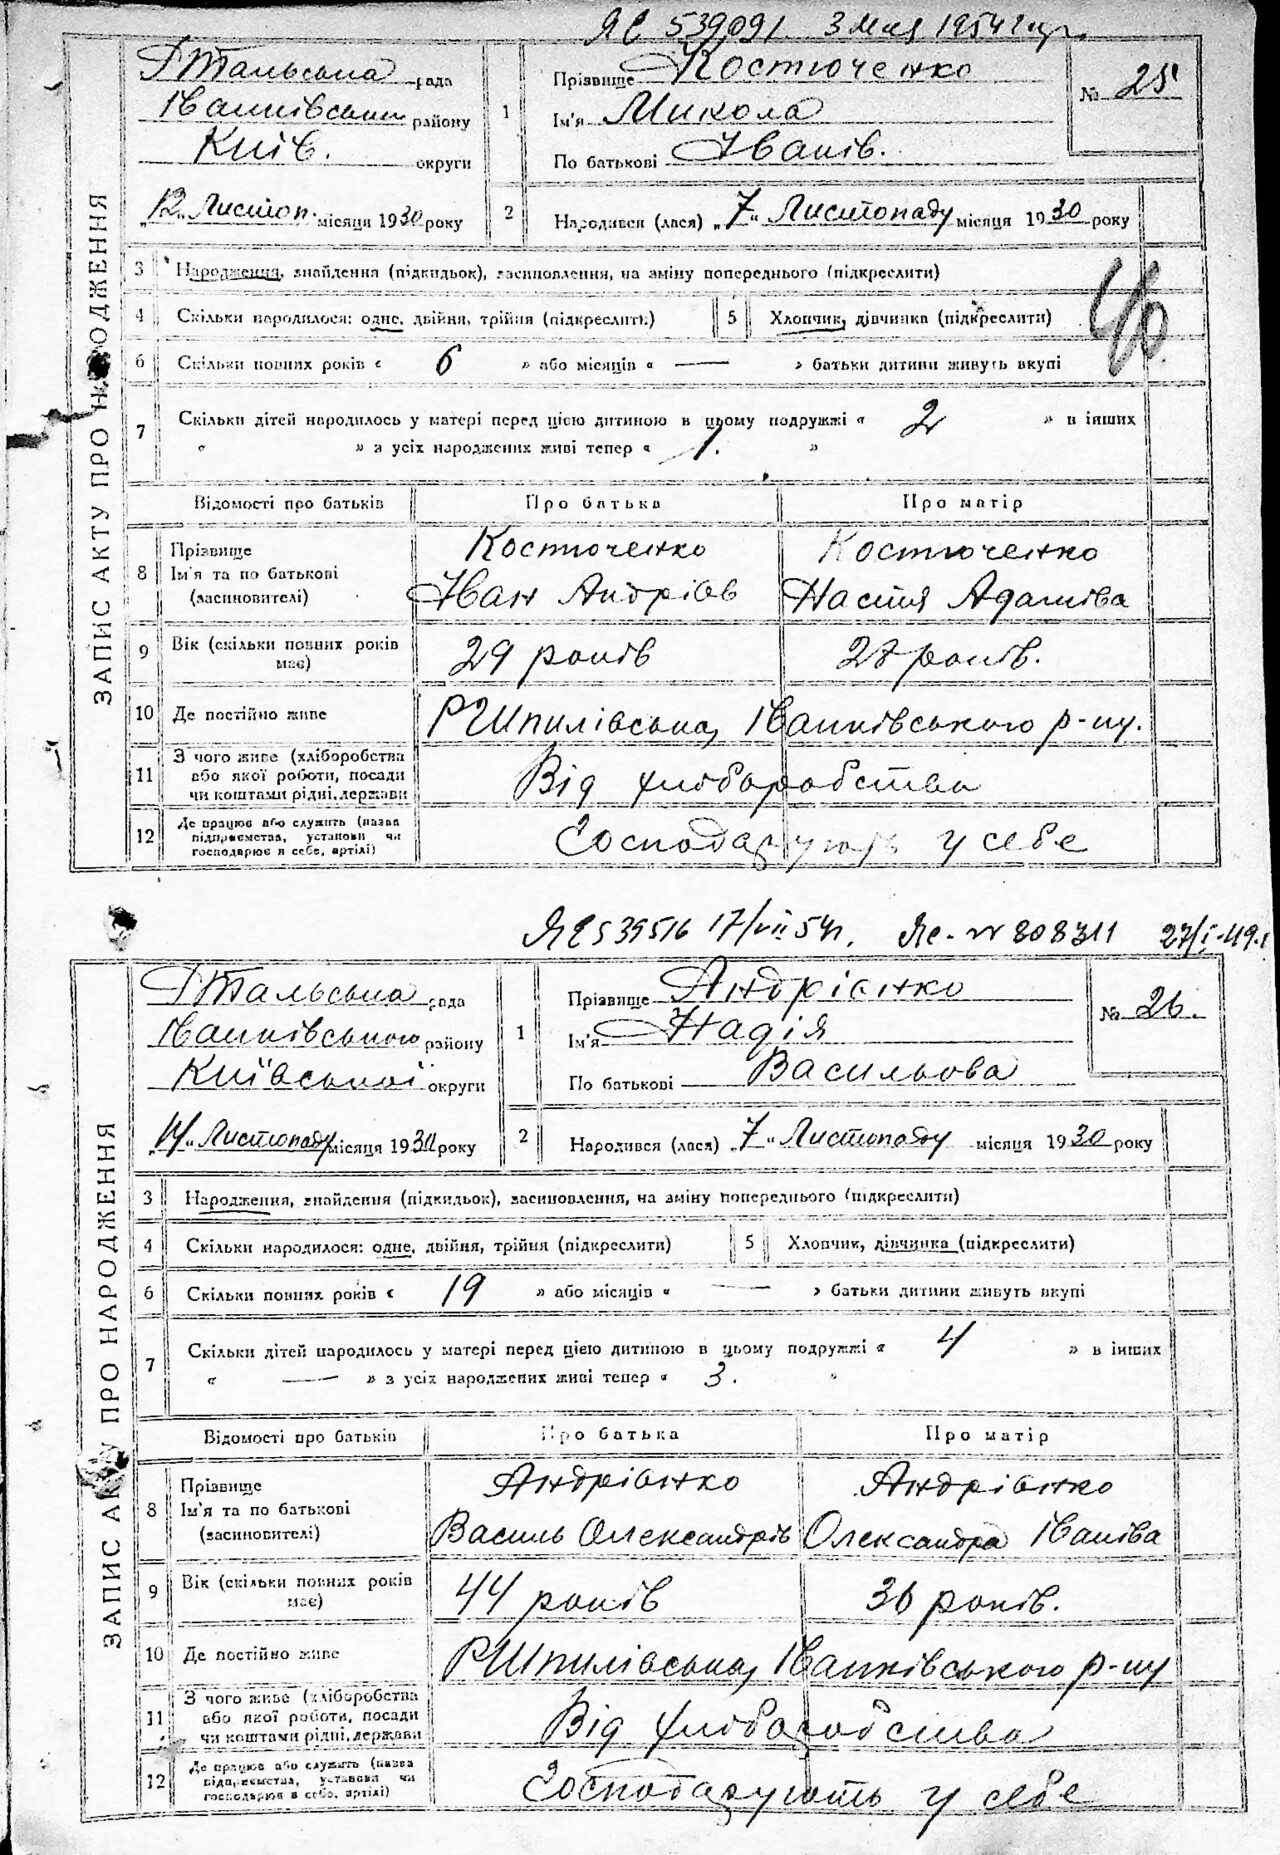 ЯЄ 539091. 3 мая 1954 г.
ЗАПИС АКТУ ПРО НАРОДЖЕННЯ
Тальська рада
Іванківськ району
Київ. округи
„12„ Листоп. місяця 1930 року
1
Прізвище Костюченко
Ім'я Микола
По батькові Іванів.
№ 25
2
Народився (лася) „7“ Листопаду місяця 1930 року
3 Народження, знайдення (підкидьок), засиновлення, на зміну попереднього (підкреслити)
4 Скільки народилося: одне, двійня, трійня (підкреслити) 5 Хлопчик, дівчинка (підкреслити)
6 Скільки повних років « 6 » або місяців « — » батьки дитини живуть вкупі
7 Скільки дітей народилось у матері перед цією дитиною в цьому подружжі « 2 » в інших
« » з усіх народжених живі тепер « 1. »
Відомості про батьків Про батька Про матір
8 Прізвище Костюченко Костюченко
Ім'я та по батькові Іван Андріїв Настя Адамова
(засиновителі)
9 Вік (скільки повних років має) 29 років 28 років.
10 Де постійно живе РШпилівська, Іванківського р-ну.
11 З чого живе (хліборобства або якої роботи, посади чи коштами рідні, держави Від хлібаробства
12 Де працює або служить (назва підприємства, установи чи господарює в себе, артілі) Господарують у себе
ЯЄ 539516 17/VII 54 г. Яс-№ 808311 27/I-49 г.
ЗАПИС АКТУ ПРО НАРОДЖЕННЯ
Тальська рада
Іванківського району
Київської округи
„14„ Листопаду місяця 1930 року
1
Прізвище Андрієнко
Ім'я Надія
По батькові Васильова
№ 26.
2
Народився (лася) „7“ Листопаду місяця 1930 року
3 Народження, знайдення (підкидьок), засиновлення, на зміну попереднього (підкреслити)
4 Скільки народилося: одне, двійня, трійня (підкреслити) 5 Хлопчик, дівчинка (підкреслити)
6 Скільки повних років « 19 » або місяців « — » батьки дитини живуть вкупі
7 Скільки дітей народилось у матері перед цією дитиною в цьому подружжі « 4 » в інших
« — » з усіх народжених живі тепер « 3. »
Відомості про батьків Про батька Про матір
8 Прізвище Андрієнко Андрієнко
Ім'я та по батькові Василь Олександрів Олександра Іваніва
(засиновителі)
9 Вік (скільки повних років має) 44 років 36 років.
10 Де постійно живе РШпилівська, Іванківського р-ну
11 З чого живе (хліборобства або якої роботи, посади чи коштами рідні, держави Від хлібаробства
12 Де працює або служить (назва підприємства, установи чи господарює в себе, артілі) Господарують у себе